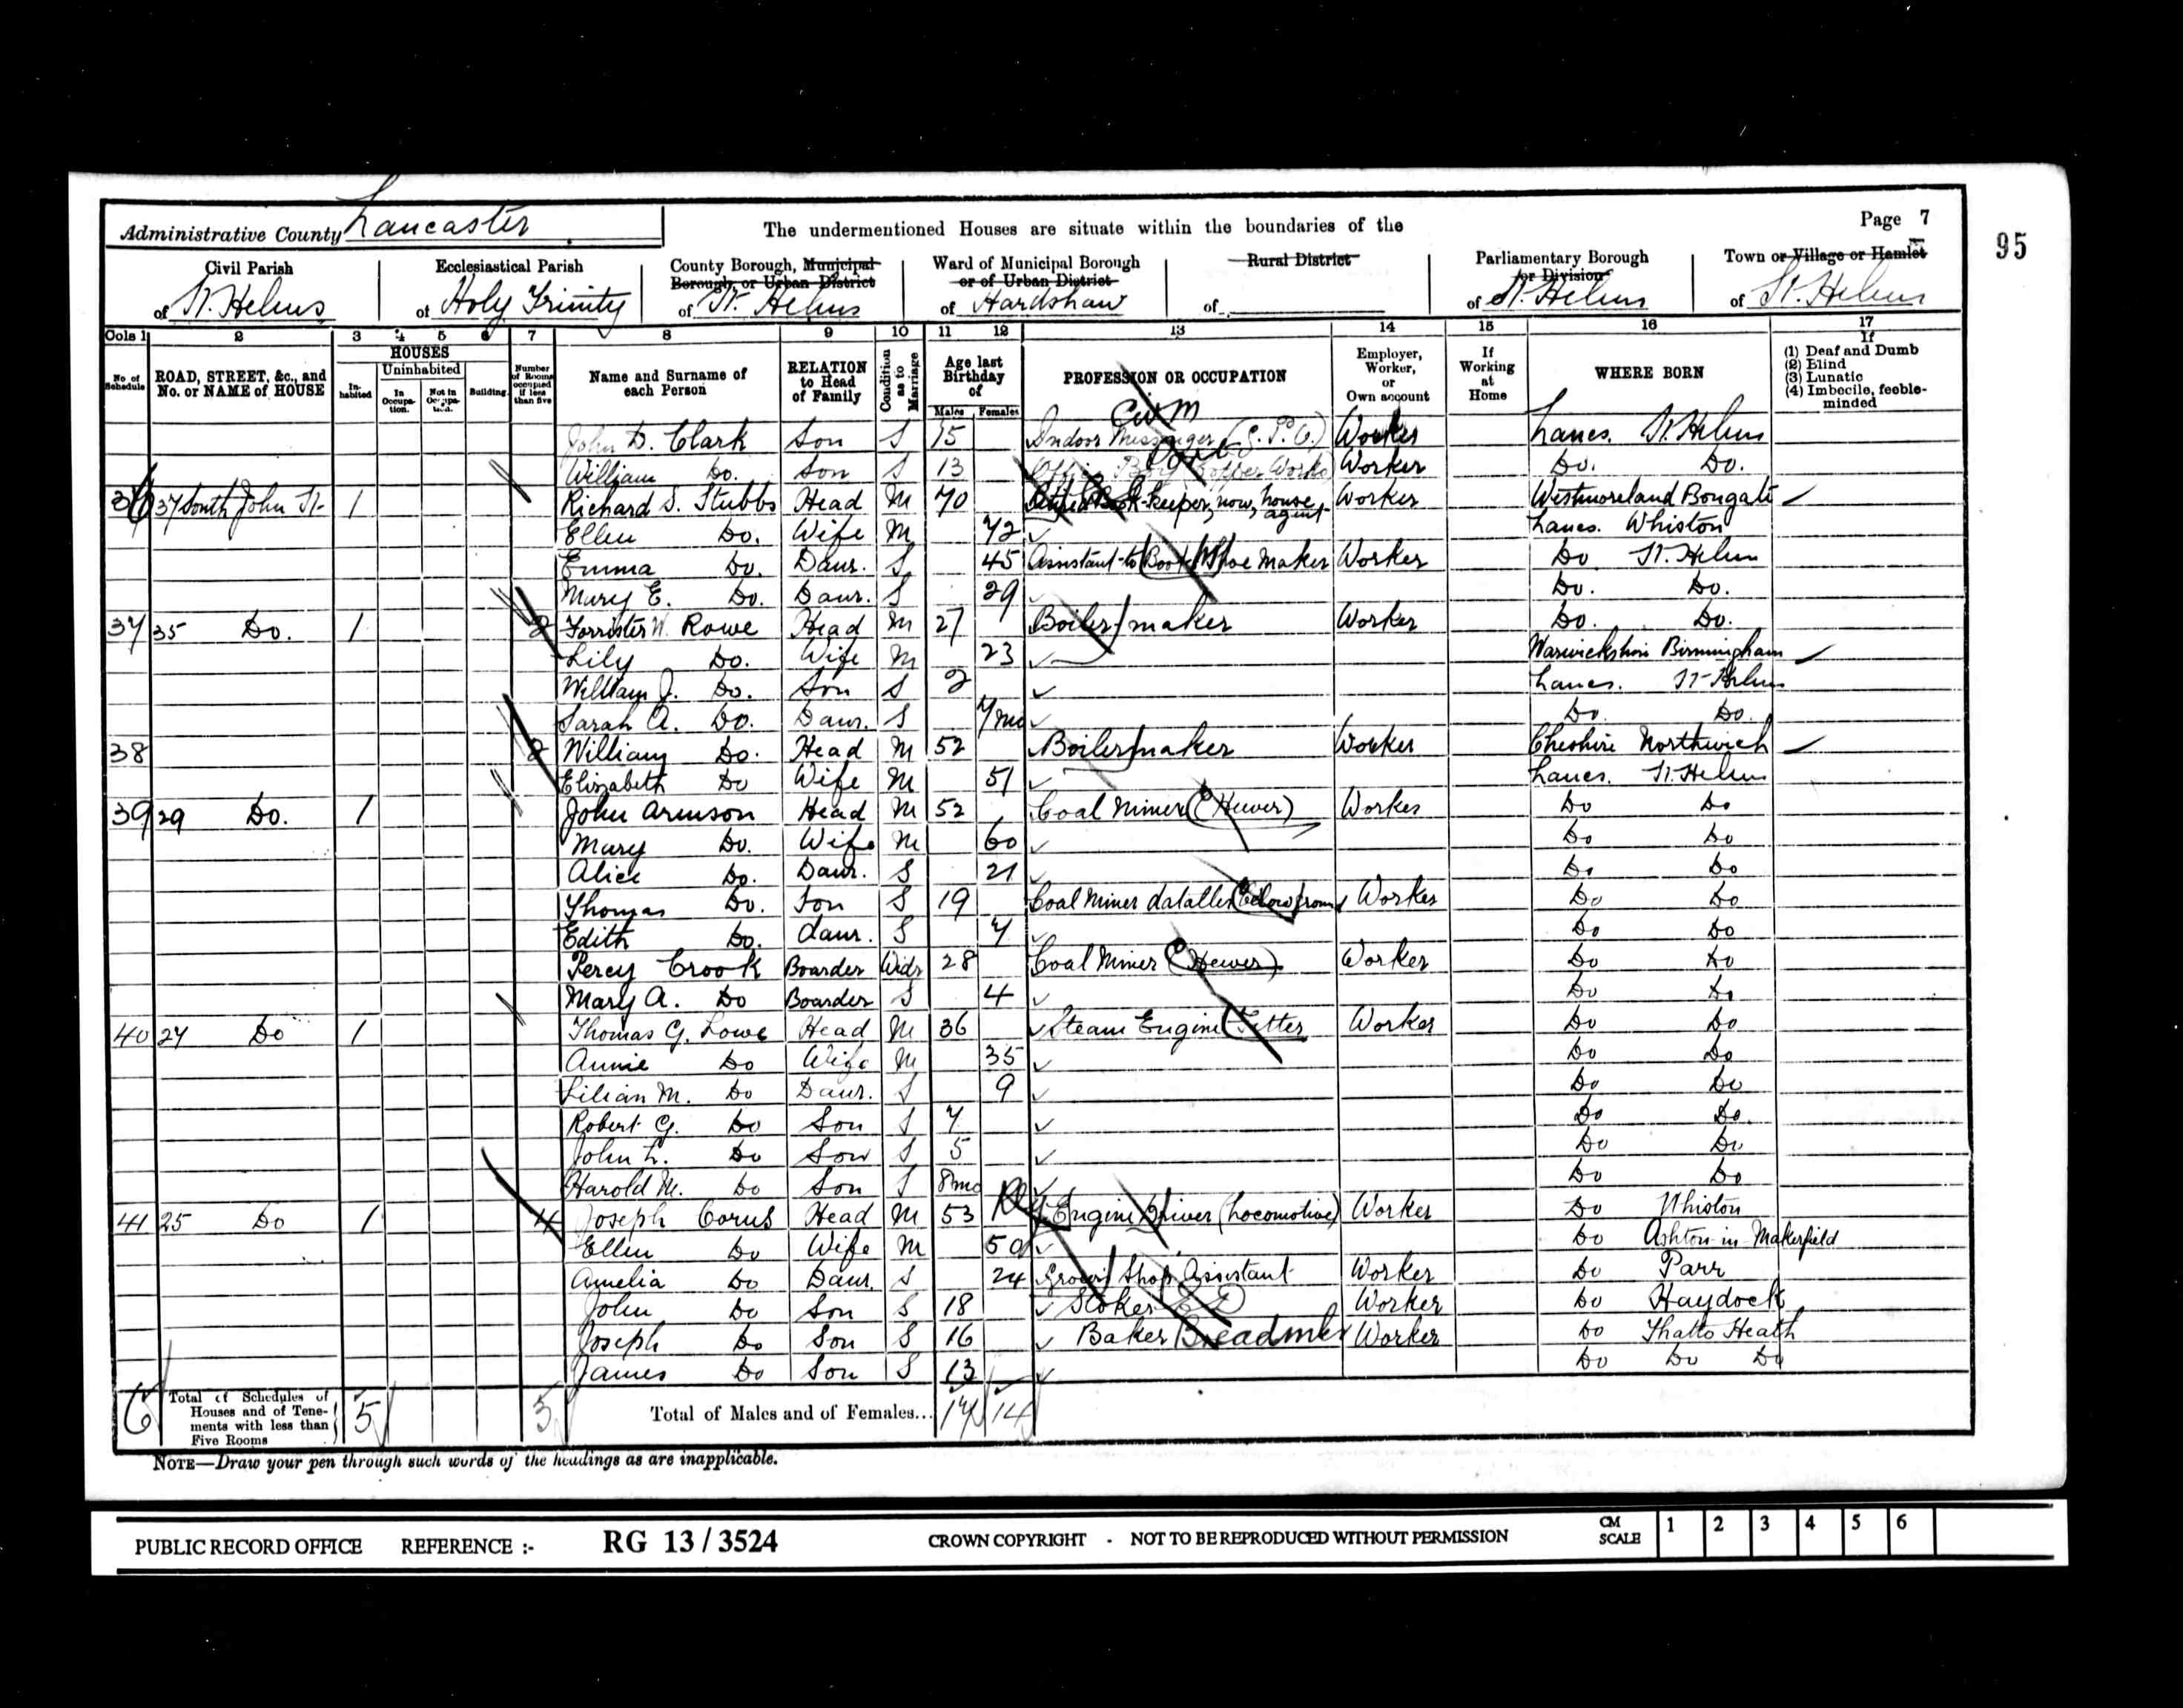 Administrative County Lancaster
The undermentioned Houses are situate within the boundaries of the
Page 7
95
Civil Parish of St. Helens
Ecclesiastical Parish of Holy Trinity
County Borough, Municipal Borough, or Urban District of St. Helens
Ward of Municipal Borough or of Urban District of Hardshaw
Rural District of
Parliamentary Borough or Division of St. Helens
Town or Village or Hamlet of St. Helens
Cols 1 2 3 4 5 6 7 8 9 10 11 12 13 14 15 16 17
No. of Schedule
ROAD, STREET, &c., and No. or NAME of HOUSE
HOUSES
Inhabited
Uninhabited
In Occupation.
Not in Occupation.
Building.
Number of Rooms occupied if less than five
Name and Surname of each Person
RELATION to Head of Family
Condition as to Marriage
Age last Birthday of
Males Females
PROFESSION OR OCCUPATION
Employer, Worker, or Own account
If Working at Home
WHERE BORN
If
(1) Deaf and Dumb
(2) Blind
(3) Lunatic
(4) Imbecile, feeble-minded
John D. Clark Son S 15 Indoor Messenger (G.P.O.) Worker Lancs. St. Helens
William Do. Son S 13 Office Boy Copper Works Worker Do. Do.
36 37 South John St. 1 Richard S. Stubbs Head M 70 Retired Book-keeper, now, house agent Worker Westmoreland Bongate
Ellen Do. Wife M 72 Lancs. Whiston
Emma Do. Daur. S 45 Assistant to Boot Shoe Maker Worker Do St. Helens
Mary E. Do. Daur. S 29 Do. Do.
37 35 Do. 1 2 Forrister W. Rowe Head M 27 Boiler maker Worker Do. Do.
Lily Do. Wife M 23 Warwickshire Birmingham
William J. Do. Son S 2 Lancs. St. Helens
Sarah A. Do. Daur. S 7 mo Do. Do.
38 2 William Do. Head M 52 Boiler maker Worker Cheshire Northwich
Elizabeth Do Wife M 51 Lancs. St. Helens
39 29 Do. 1 John Arnson Head M 52 Coal Miner (Hewer) Worker Do Do
Mary Do. Wife M 60 Do Do
Alice Do. Daur. S 21 Do Do
Thomas Do. Son S 19 Coal Miner dataller Worker Do Do
Edith Do. Daur. S 7 Do Do
Percy Crook Boarder Widr 28 Coal Miner (Hewer) Worker Do Do
Mary A. Do Boarder S 4 Do Do
40 27 Do 1 Thomas G. Lowe Head M 36 Steam Engine Fitter Worker Do Do
Annie Do Wife M 35 Do Do
Lilian M. Do Daur. S 9 Do Do
Robert G. Do Son S 7 Do Do.
John L. Do Son S 5 Do Do
Harold M. Do Son S 8mo Do Do
41 25 Do 1 4 Joseph Corns Head M 53 Engine Driver (Locomotive) Worker Do Whiston
Ellen Do Wife M 50 Do Ashton-in-Makerfield
Amelia Do Daur. S 24 Shop Assistant Worker Do Parr
John Do Son S 18 Stoker Worker Do Haydock
Joseph Do Son S 16 Baker Breadmkr Worker Do Thatto Heath
James Do Son S 13 Do Do Do
6 Total of Schedules of Houses and of Tenements with less than Five Rooms 5 3 Total of Males and of Females... 17 14
NOTE—Draw your pen through such words of the headings as are inapplicable.
PUBLIC RECORD OFFICE REFERENCE :- RG 13 / 3524 CROWN COPYRIGHT - NOT TO BE REPRODUCED WITHOUT PERMISSION CM SCALE 1 2 3 4 5 6